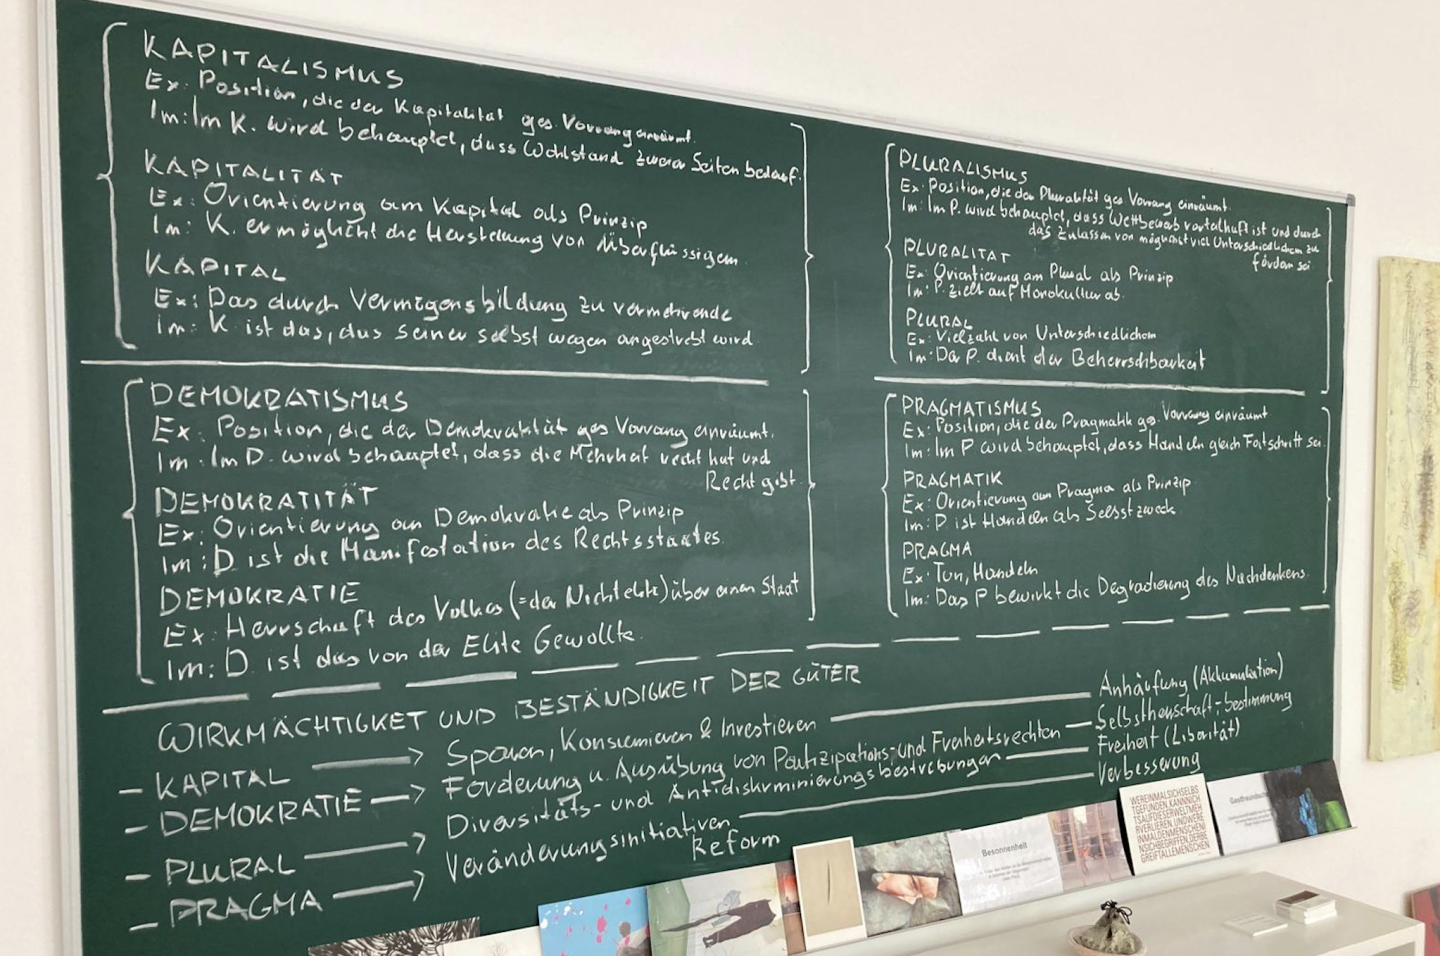 KAPITALISMUS
Ex: Position, die der Kapitalität ges. Vorrang einräumt.
Im: Im K. wird behauptet, dass Wohlstand zweier Seiten bedarf.
KAPITALITÄT
Ex: Orientierung am Kapital als Prinzip
Im: K. ermöglicht die Herstellung von Überflüssigem
KAPITAL
Ex: Das durch Vermögensbildung zu vermehrende
Im: K. ist das, das seiner selbst wegen angestrebt wird
DEMOKRATISMUS
Ex: Position, die der Demokratität ges Vorrang einräumt.
Im: Im D. wird behauptet, dass die Mehrheit recht hat und
Recht gibt.
DEMOKRATITÄT
Ex: Orientierung an Demokratie als Prinzip
Im: D. ist die Manifestation des Rechtsstaates.
DEMOKRATIE
Ex: Herrschaft des Volkes (=der Nichtelite) über einen Staat
Im: D. ist das von der Elite Gewollte.
PLURALISMUS
Ex: Position, die der Pluralität ges Vorrang einräumt.
Im: Im P. wird behauptet, dass Wettbewerb vorteilhaft ist und durch
das Zulassen von möglichst viel Unterschiedlichem zu
fördern sei
PLURALITÄT
Ex: Orientierung am Plural als Prinzip
Im: P. zielt auf Monokultur ab.
PLURAL
Ex: Vielzahl von Unterschiedlichem
Im: Der P. dient der Beherrschbarkeit
PRAGMATISMUS
Ex: Position, die der Pragmatik ges. Vorrang einräumt
Im: Im P wird behauptet, dass Handeln gleich Fortschritt sei.
PRAGMATIK
Ex: Orientierung am Pragma als Prinzip
Im: P. ist Handeln als Selbstzweck
PRAGMA
Ex: Tun, Handeln
Im: Das P bewirkt die Degradierung des Nachdenkens.
WIRKMÄCHTIGKEIT UND BESTÄNDIGKEIT DER GÜTER
- KAPITAL → Sparen, Konsumieren & Investieren — Anhäufung (Akkumulation)
- DEMOKRATIE → Förderung u. Ausübung von Partizipations- und Freiheitsrechten — Selbstherrschaft, -bestimmung
- PLURAL → Diversitäts- und Antidiskriminierungsbestrebungen — Freiheit (Liberität)
- PRAGMA → Veränderungsinitiativen — Verbesserung
Reform
Besonnenheit
WEREINMALSICHSELBS
TGEFUNDEN,KANNNICH
TSAUFDIESERWELTMEH
RVERLIEREN.UNDWERE
INMALDENMENSCHENI
NSICHBEGRIFFEN,DERBE
GREIFTALLEMENSCHEN